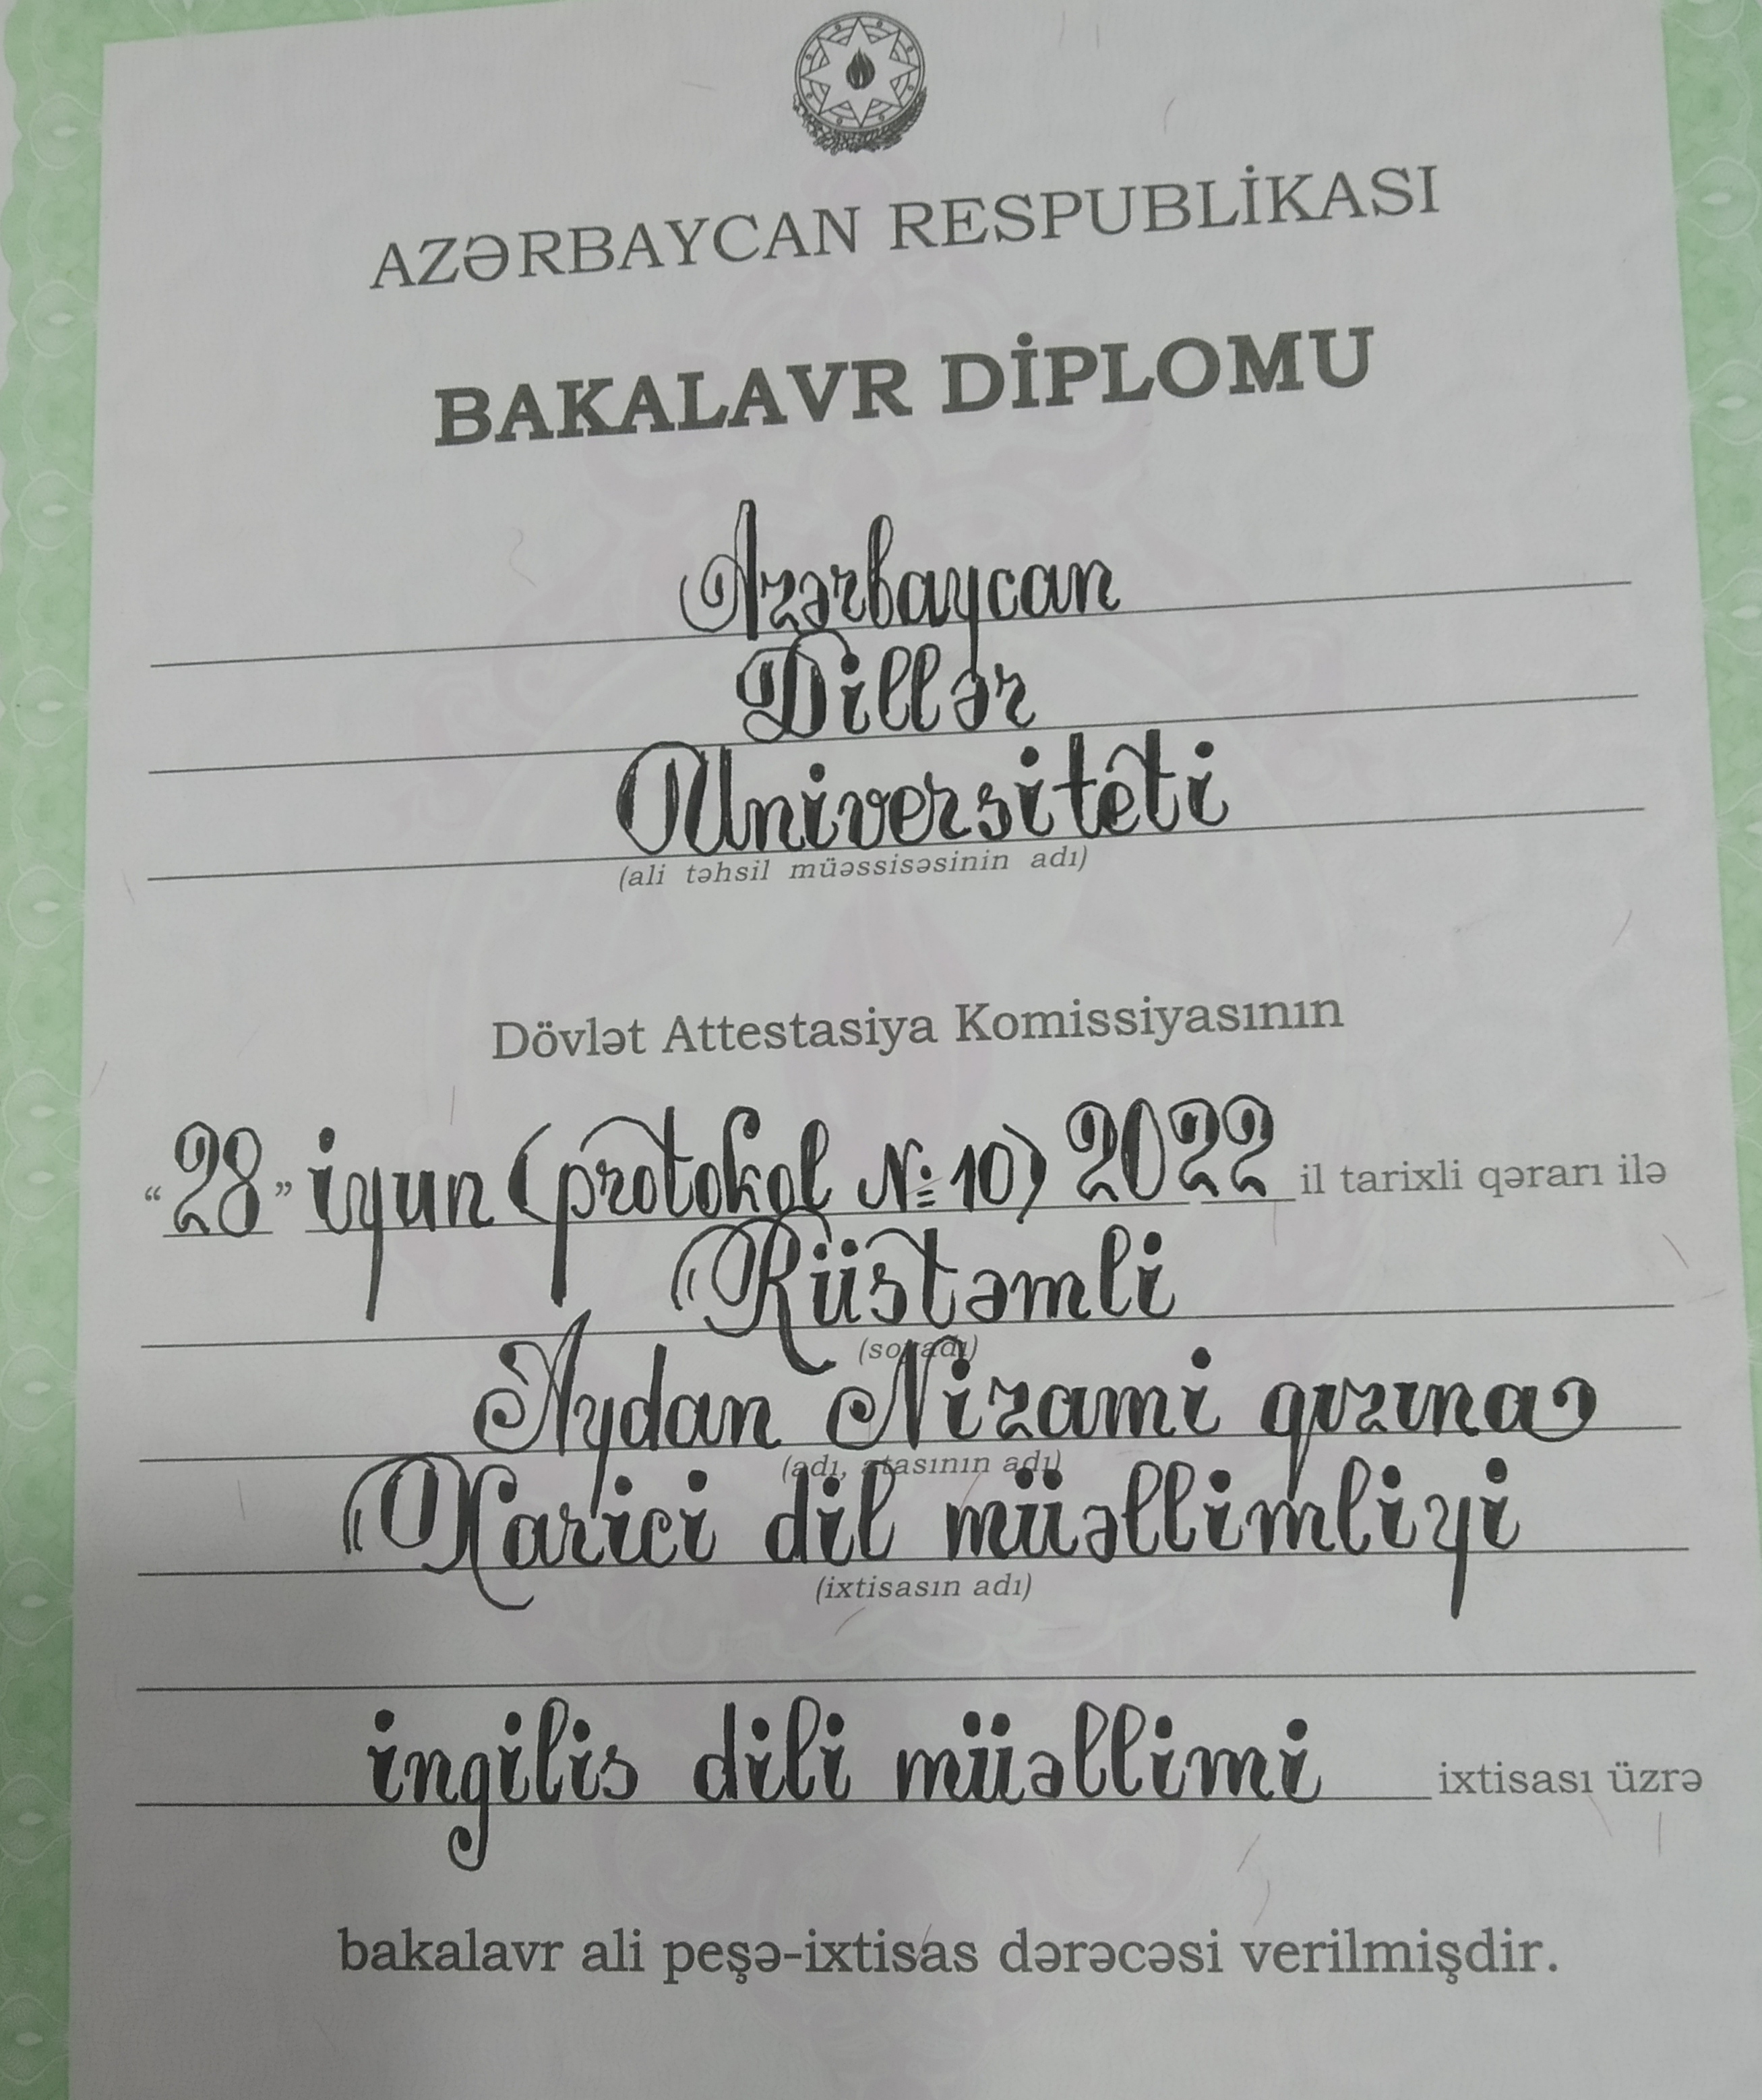 AZƏRBAYCAN RESPUBLİKASI
BAKALAVR DİPLOMU
Azərbaycan
Dillər
Universiteti
(ali təhsil müəssisəsinin adı)
Dövlət Attestasiya Komissiyasının
“28” iyun (protokol №10) 2022 il tarixli qərarı ilə
Rüstəmli
(soyadı)
Aydan Nizami qızına
(adı, atasının adı)
Xarici dil müəllimliyi
(ixtisasın adı)
ingilis dili müəllimi ixtisası üzrə
bakalavr ali peşə-ixtisas dərəcəsi verilmişdir.